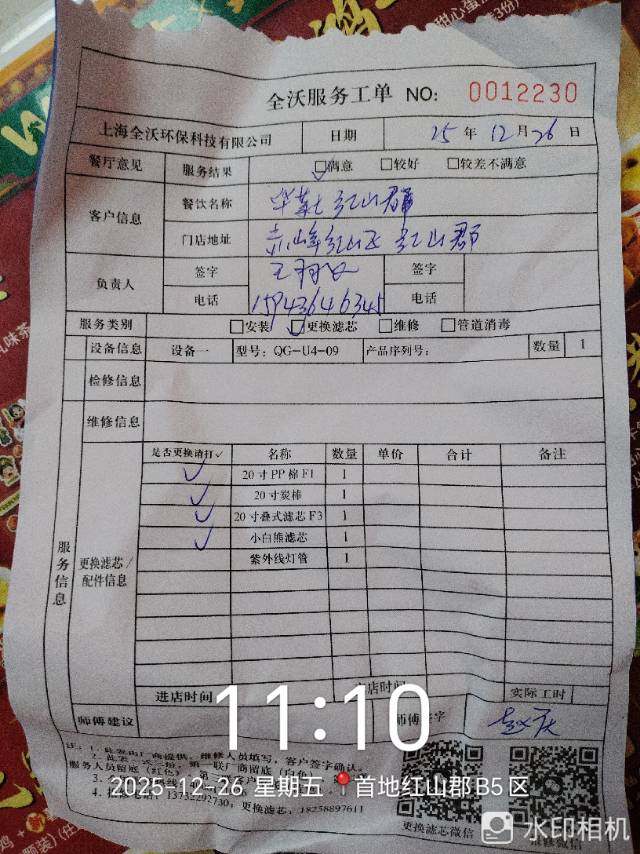 全沃服务工单 NO: 0012230
上海全沃环保科技有限公司 日期 25 年 12 月 26 日
餐厅意见 服务结果 满意 较好 较差不满意
客户信息 餐饮名称 华莱士红山郡
门店地址 赤峰红山区 红山郡
负责人 签字 签字
电话 15943646345 电话
服务类别 安装 更换滤芯 维修 管道消毒
设备信息 设备一 型号: QG-U4-09 产品序列号: 数量 1
检修信息
维修信息
服务信息
更换滤芯/配件信息
是否更换请打✓ 名称 数量 单价 合计 备注
✓ 20寸PP棉F1 1
✓ 20寸炭棒 1
✓ 20寸叠式滤芯F3 1
✓ 小白熊滤芯 1
紫外线灯管 1
进店时间 店时间 实际工时
师傅建议 师傅签字
11:10
2025-12-26 星期五 首地红山郡B5区
更换滤芯: 18258897611
更换滤芯微信 维修微信
水印相机
甜心蛋
风味茶